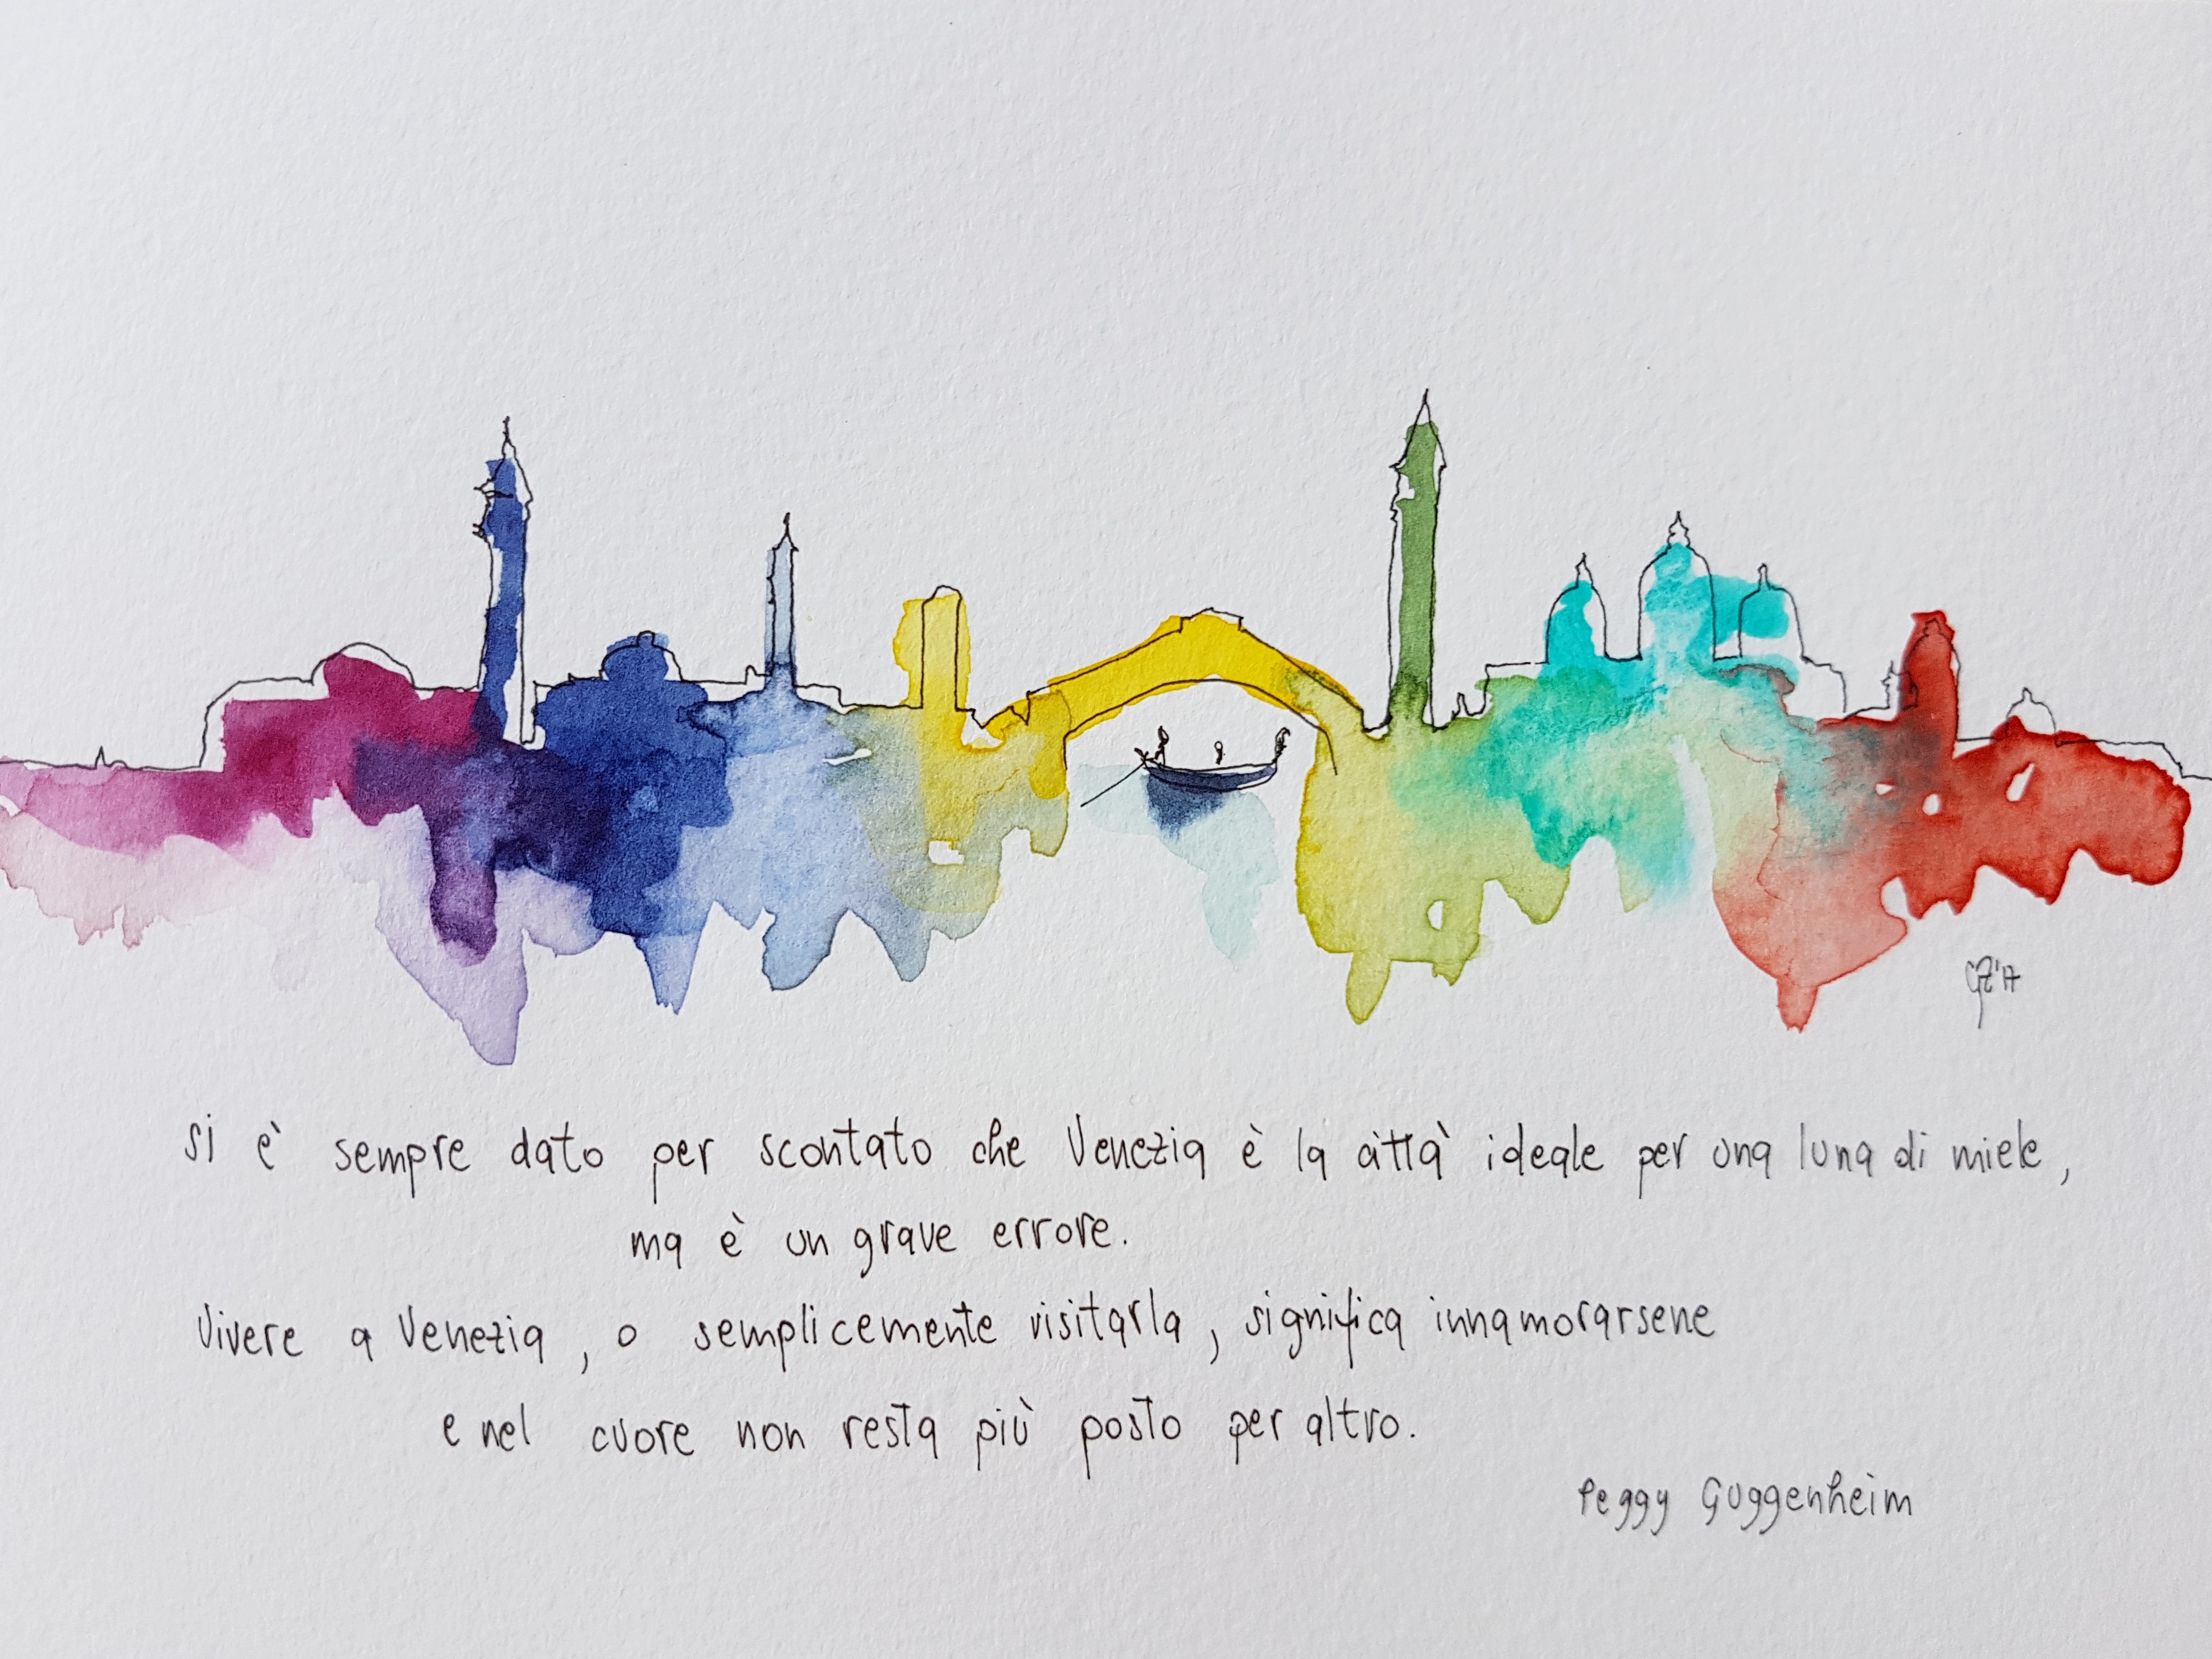 si è sempre dato per scontato che Venezia è la città ideale per una luna di miele,
ma è un grave errore.
Vivere a Venezia, o semplicemente visitarla, significa innamorarsene
e nel cuore non resta più posto per altro.
Peggy Guggenheim